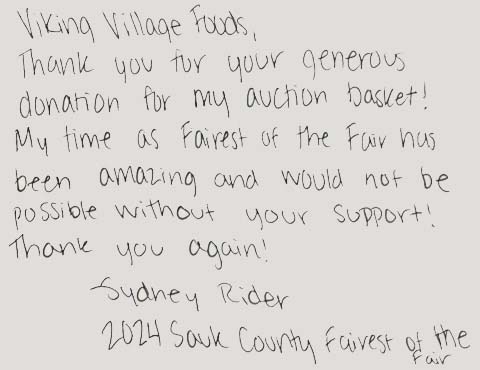 Viking Village Foods,
Thank you for your generous
donation for my auction basket!
My time as Fairest of the Fair has
been amazing and would not be
possible without your support!
Thank you again!
-Sydney Rider
2024 Sauk County Fairest of the
Fair